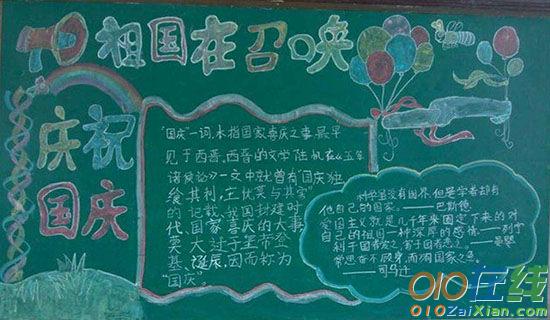 祖国在召唤
庆祝
国庆
"国庆"一词,本指国家喜庆之事最早
见于西晋,西晋的文学陆机在《五等
诸侯论》一文中就曾有"国庆独
飨其利,主忧莫与其害"
的记载、我国封建时
代、国家喜庆的大事
莫大过于皇帝登
基、诞辰,因而称为
"国庆。
科学虽没有国界,但是学者却有
他自己的国家。——巴斯德
爱国主义就是几千年来固定下来的对
自己的祖国一种深厚的感情。——列宁
利于国者爱之,害于国者恶之。——晏婴
常思奋不顾身,而殉国家之急
——司马迁
010在线
010ZaiXian.com